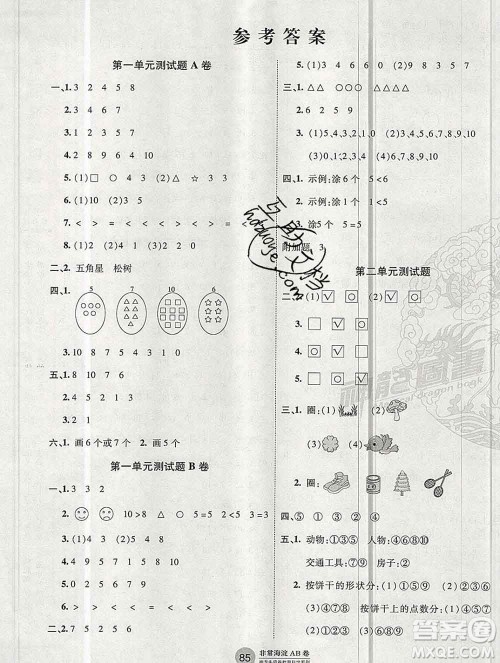 参考答案
第一单元测试题 A 卷
一、1. 3 2 4 5 8
2. 4 9 7 10 6
3. 2 8 5 7 9
4. 2 9 6 8 10
5. (1)□ (2)4 (3)☆ (4)○
6. (1)4 3 (2)4 3
7. < > = < = > < >
二、2. 五角星 松树
四、1. 5 7 6
2.
3. 10 7 5 4 2 1
五、1. 8 7 6
2. 2 1
六、1. 画 6 个或 7 个 2. 画 5 个
第一单元测试题 B 卷
一、1. 3 3 2
2. 10>8 5=5
3. (1)2 (2)4 4
4. 10 8 7 5 4 3 2
5. < > < = > < > =
二、2. 5 6 4 5 2
5. (1)3 (2)4 (3)9 (4)7 (5)6
三、1. △△△ ○○○○
2. (1)0,1,2,3,4 (2)6,7,8,9,10
(3)0,1,2,3,4 (4)6,7,8,9,10
四、1. 示例:涂 6 个 5<6
2. 示例:涂 6 个 6>5
3. 涂5个 5=5
附加题 3
第二单元测试题
3.
4.
5.
三、1. 圈:(1) (2)
(3) (4)
2. 圈:
四、⑤ ① ③ ② ④
五、1. 动物:①③⑤ 人物:④⑥⑧
交通工具:⑦⑨ 房子:②
2. 按饼干的形状分:(1)①⑤⑨
(2)③④⑥ (3)②⑦⑧
按饼干上的点数分:(1)①④⑧
(2)②⑥⑨ (3)③⑤⑦
85
非常海淀 AB 卷
互助文档
hdzuoye.com
答案圈